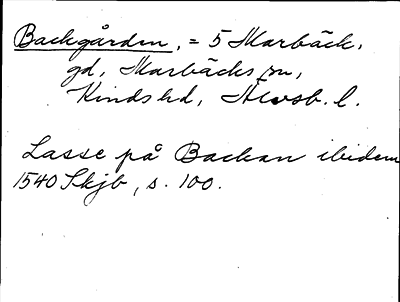 Backgården, = 5 Marbäck,
gd, Marbäcks sn,
Kinds hd, Älvsb. l.
Lasse på Backan ibidem
1540 Skjb, s. 100.